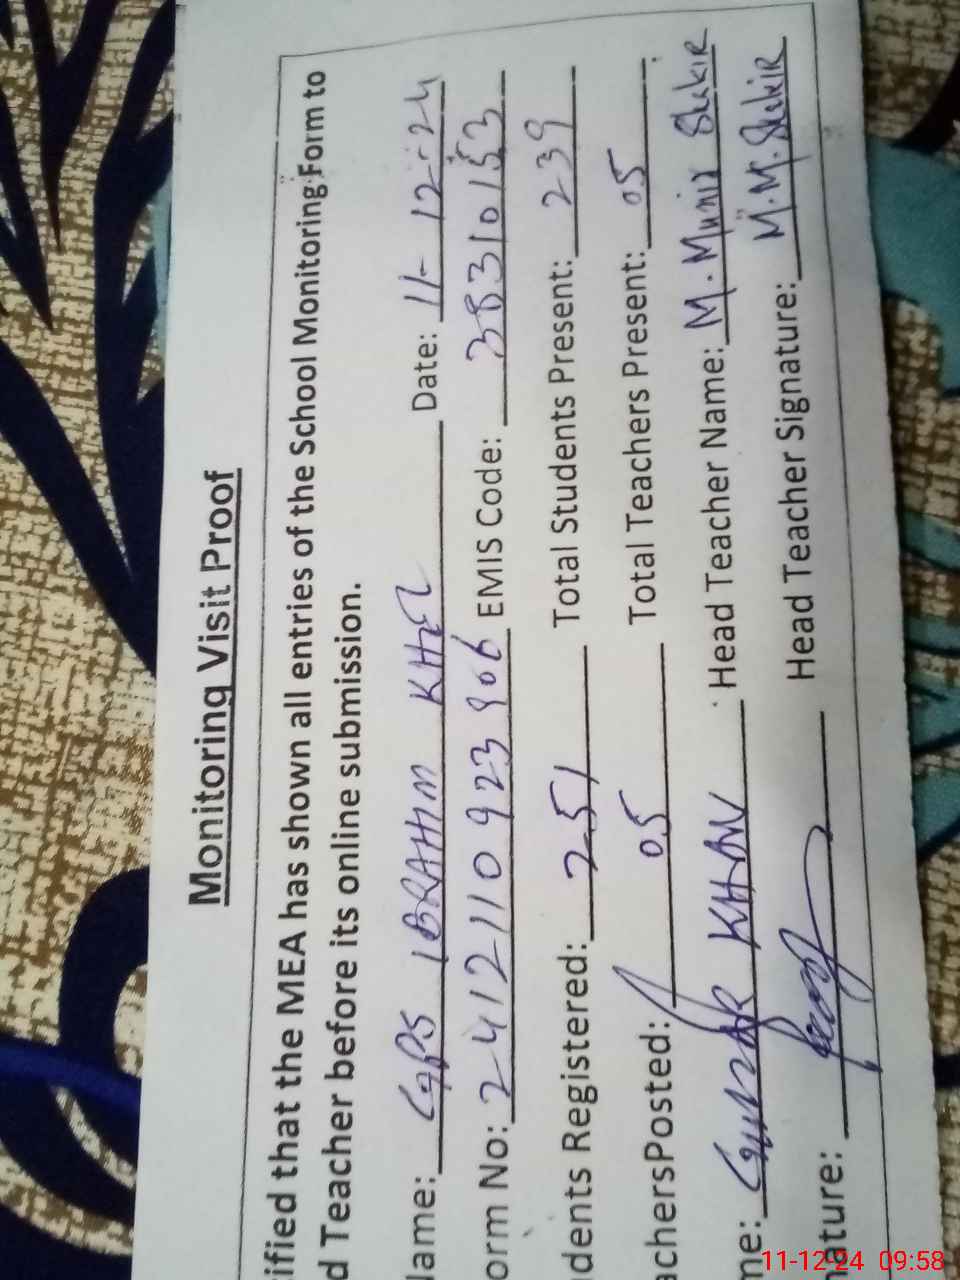 Monitoring Visit Proof
ified that the MEA has shown all entries of the School Monitoring Form to
d Teacher before its online submission.
lame: GPS IBRAHIM KHEL Date: 11-12-24
orm No: 2412110923906 EMIS Code: 38310153
dents Registered: 251 Total Students Present: 239
achersPosted: 05 Total Teachers Present: 05
me: KHAN Head Teacher Name: M. Munir Shakir
nature: Head Teacher Signature: M.M. Shakir
11-12-24 09:58